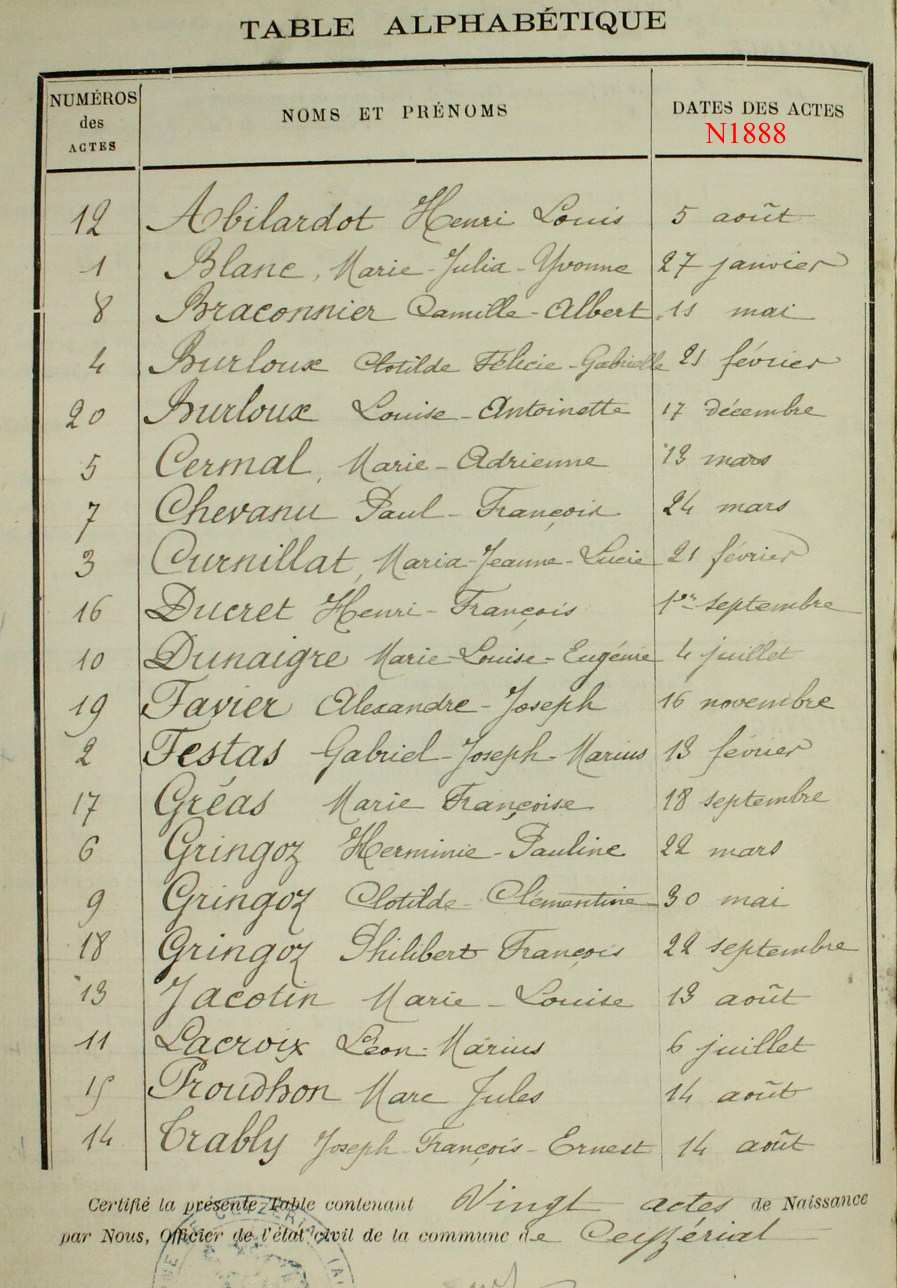 TABLE ALPHABÉTIQUE
NUMÉROS des ACTES NOMS ET PRÉNOMS DATES DES ACTES
N1888
12 Abilardot Henri Louis 5 août
1 Blanc, Marie-Julia-Yvonne 27 janvier
8 Braconnier Camille-Albert 11 mai
4 Burloux Clotilde Félicie-Gabrielle 21 février
20 Burloux Louise-Antoinette 17 décembre
5 Cermal, Marie-Adrienne 13 mars
7 Chevanu Paul-François 24 mars
3 Curnillat, Maria-Jeanne-Lucie 21 février
16 Ducret Henri-François 1er septembre
10 Dunaigre Marie-Louise-Eugénie 4 juillet
19 Favier Alexandre-Joseph 16 novembre
2 Festas Gabriel-Joseph-Marius 13 février
17 Gréas Marie Françoise 18 septembre
6 Gringoz Herminie-Pauline 22 mars
9 Gringoz Clotilde-Clementine 30 mai
18 Gringoz Philibert François 22 septembre
13 Jacotin Marie-Louise 13 août
11 Lacroix Léon-Marius 6 juillet
15 Proudhon Marc Jules 14 août
14 Trably Joseph-François-Ernest 14 août
Certifié la présente Table contenant Vingt actes de Naissance
par Nous, Officier de l'état civil de la commune de Ceyzériat